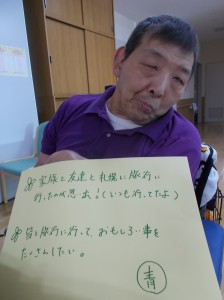 家族と友達と札幌に旅行に
行ったのが思い出!(いつも行ってたよ)
皆と旅行に行って、おもしろい事を
たくさんしたい。
青